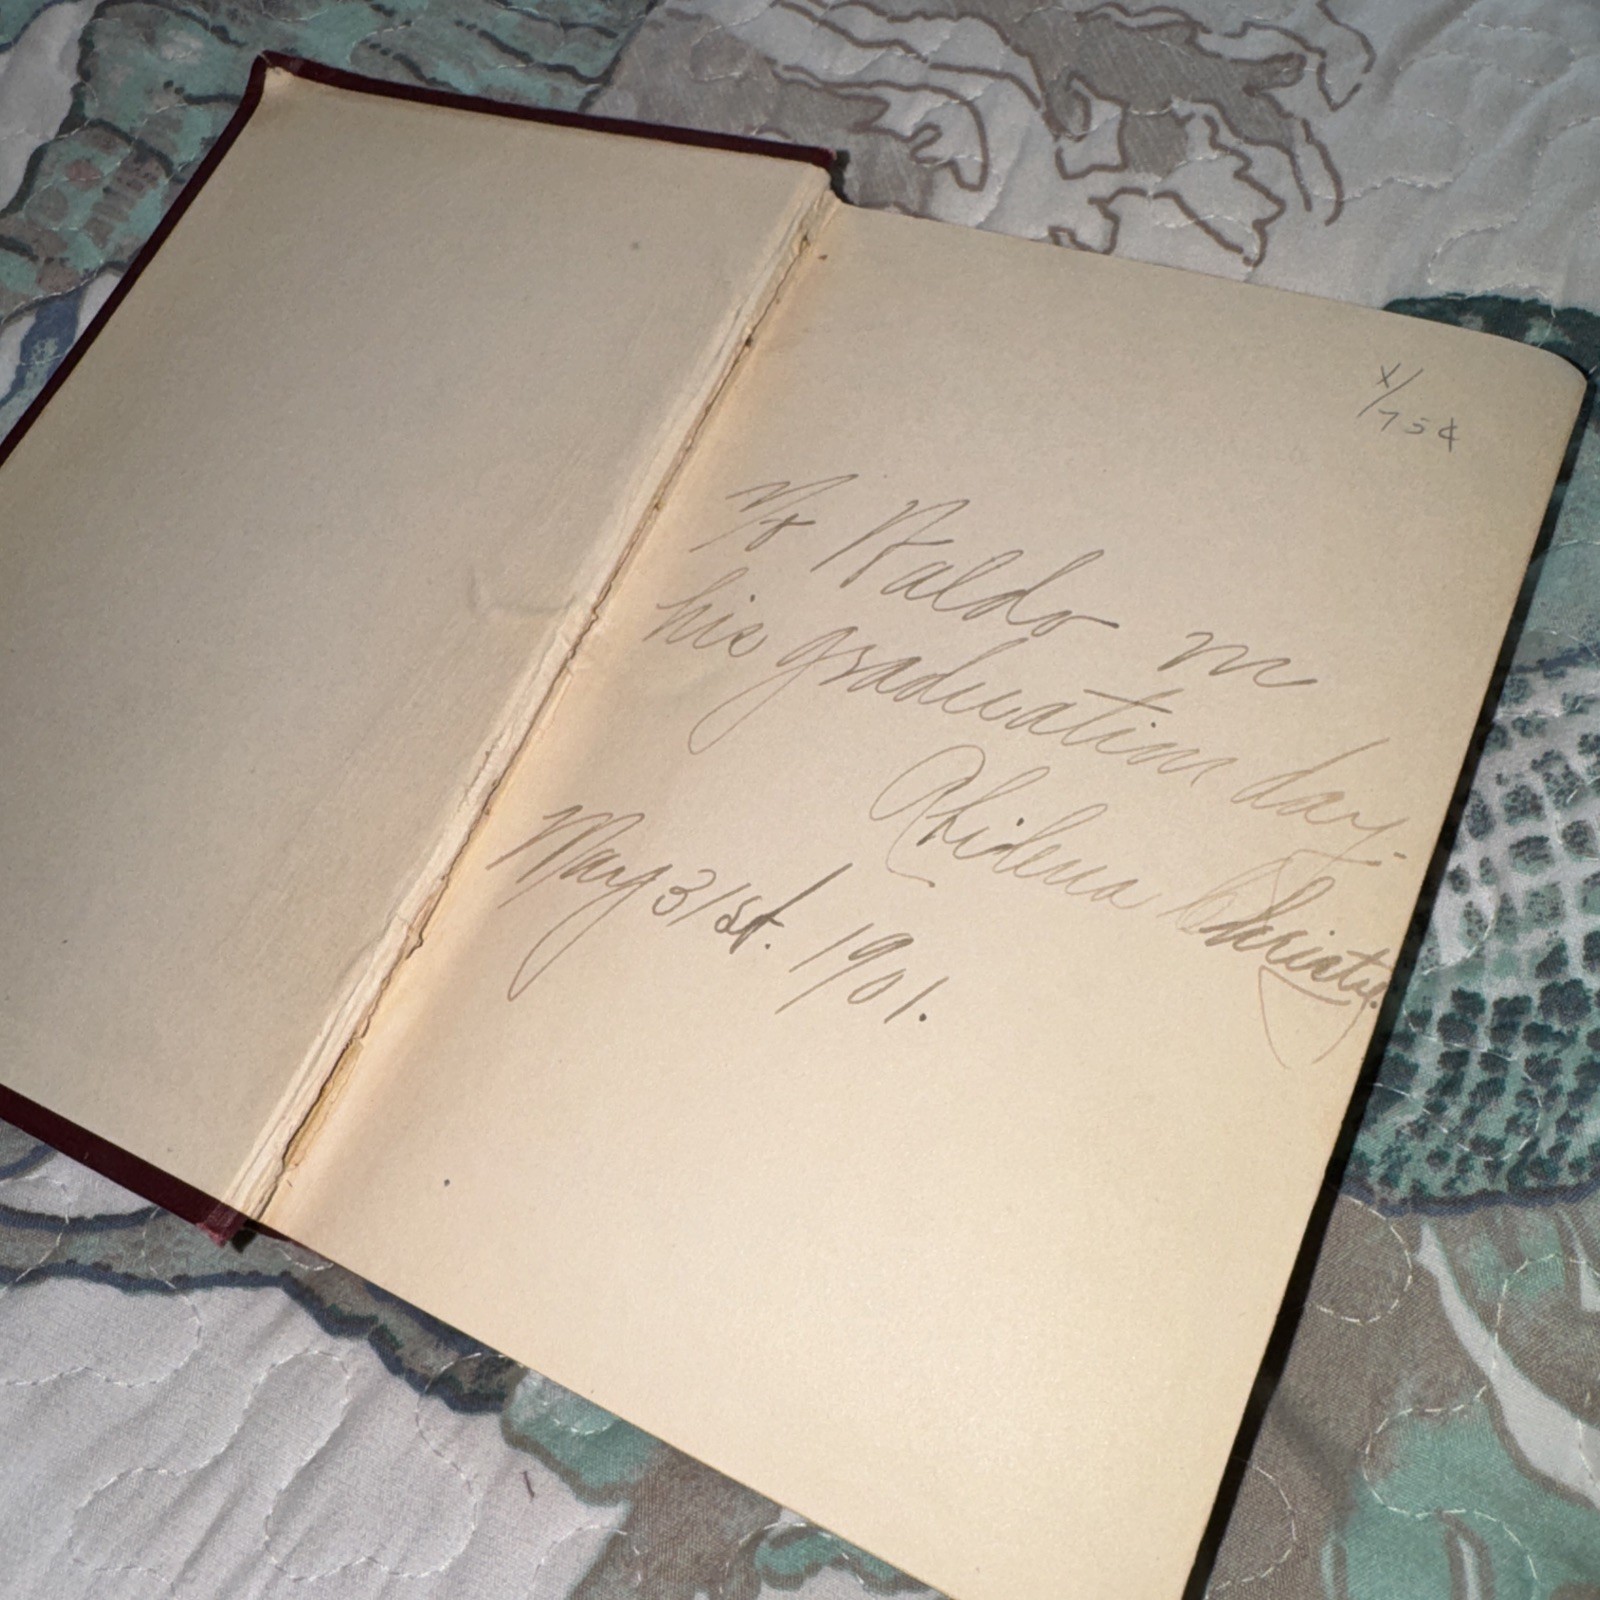 x/75¢
To Waldo on
his graduation day.
Christy.
May 31st. 1901.